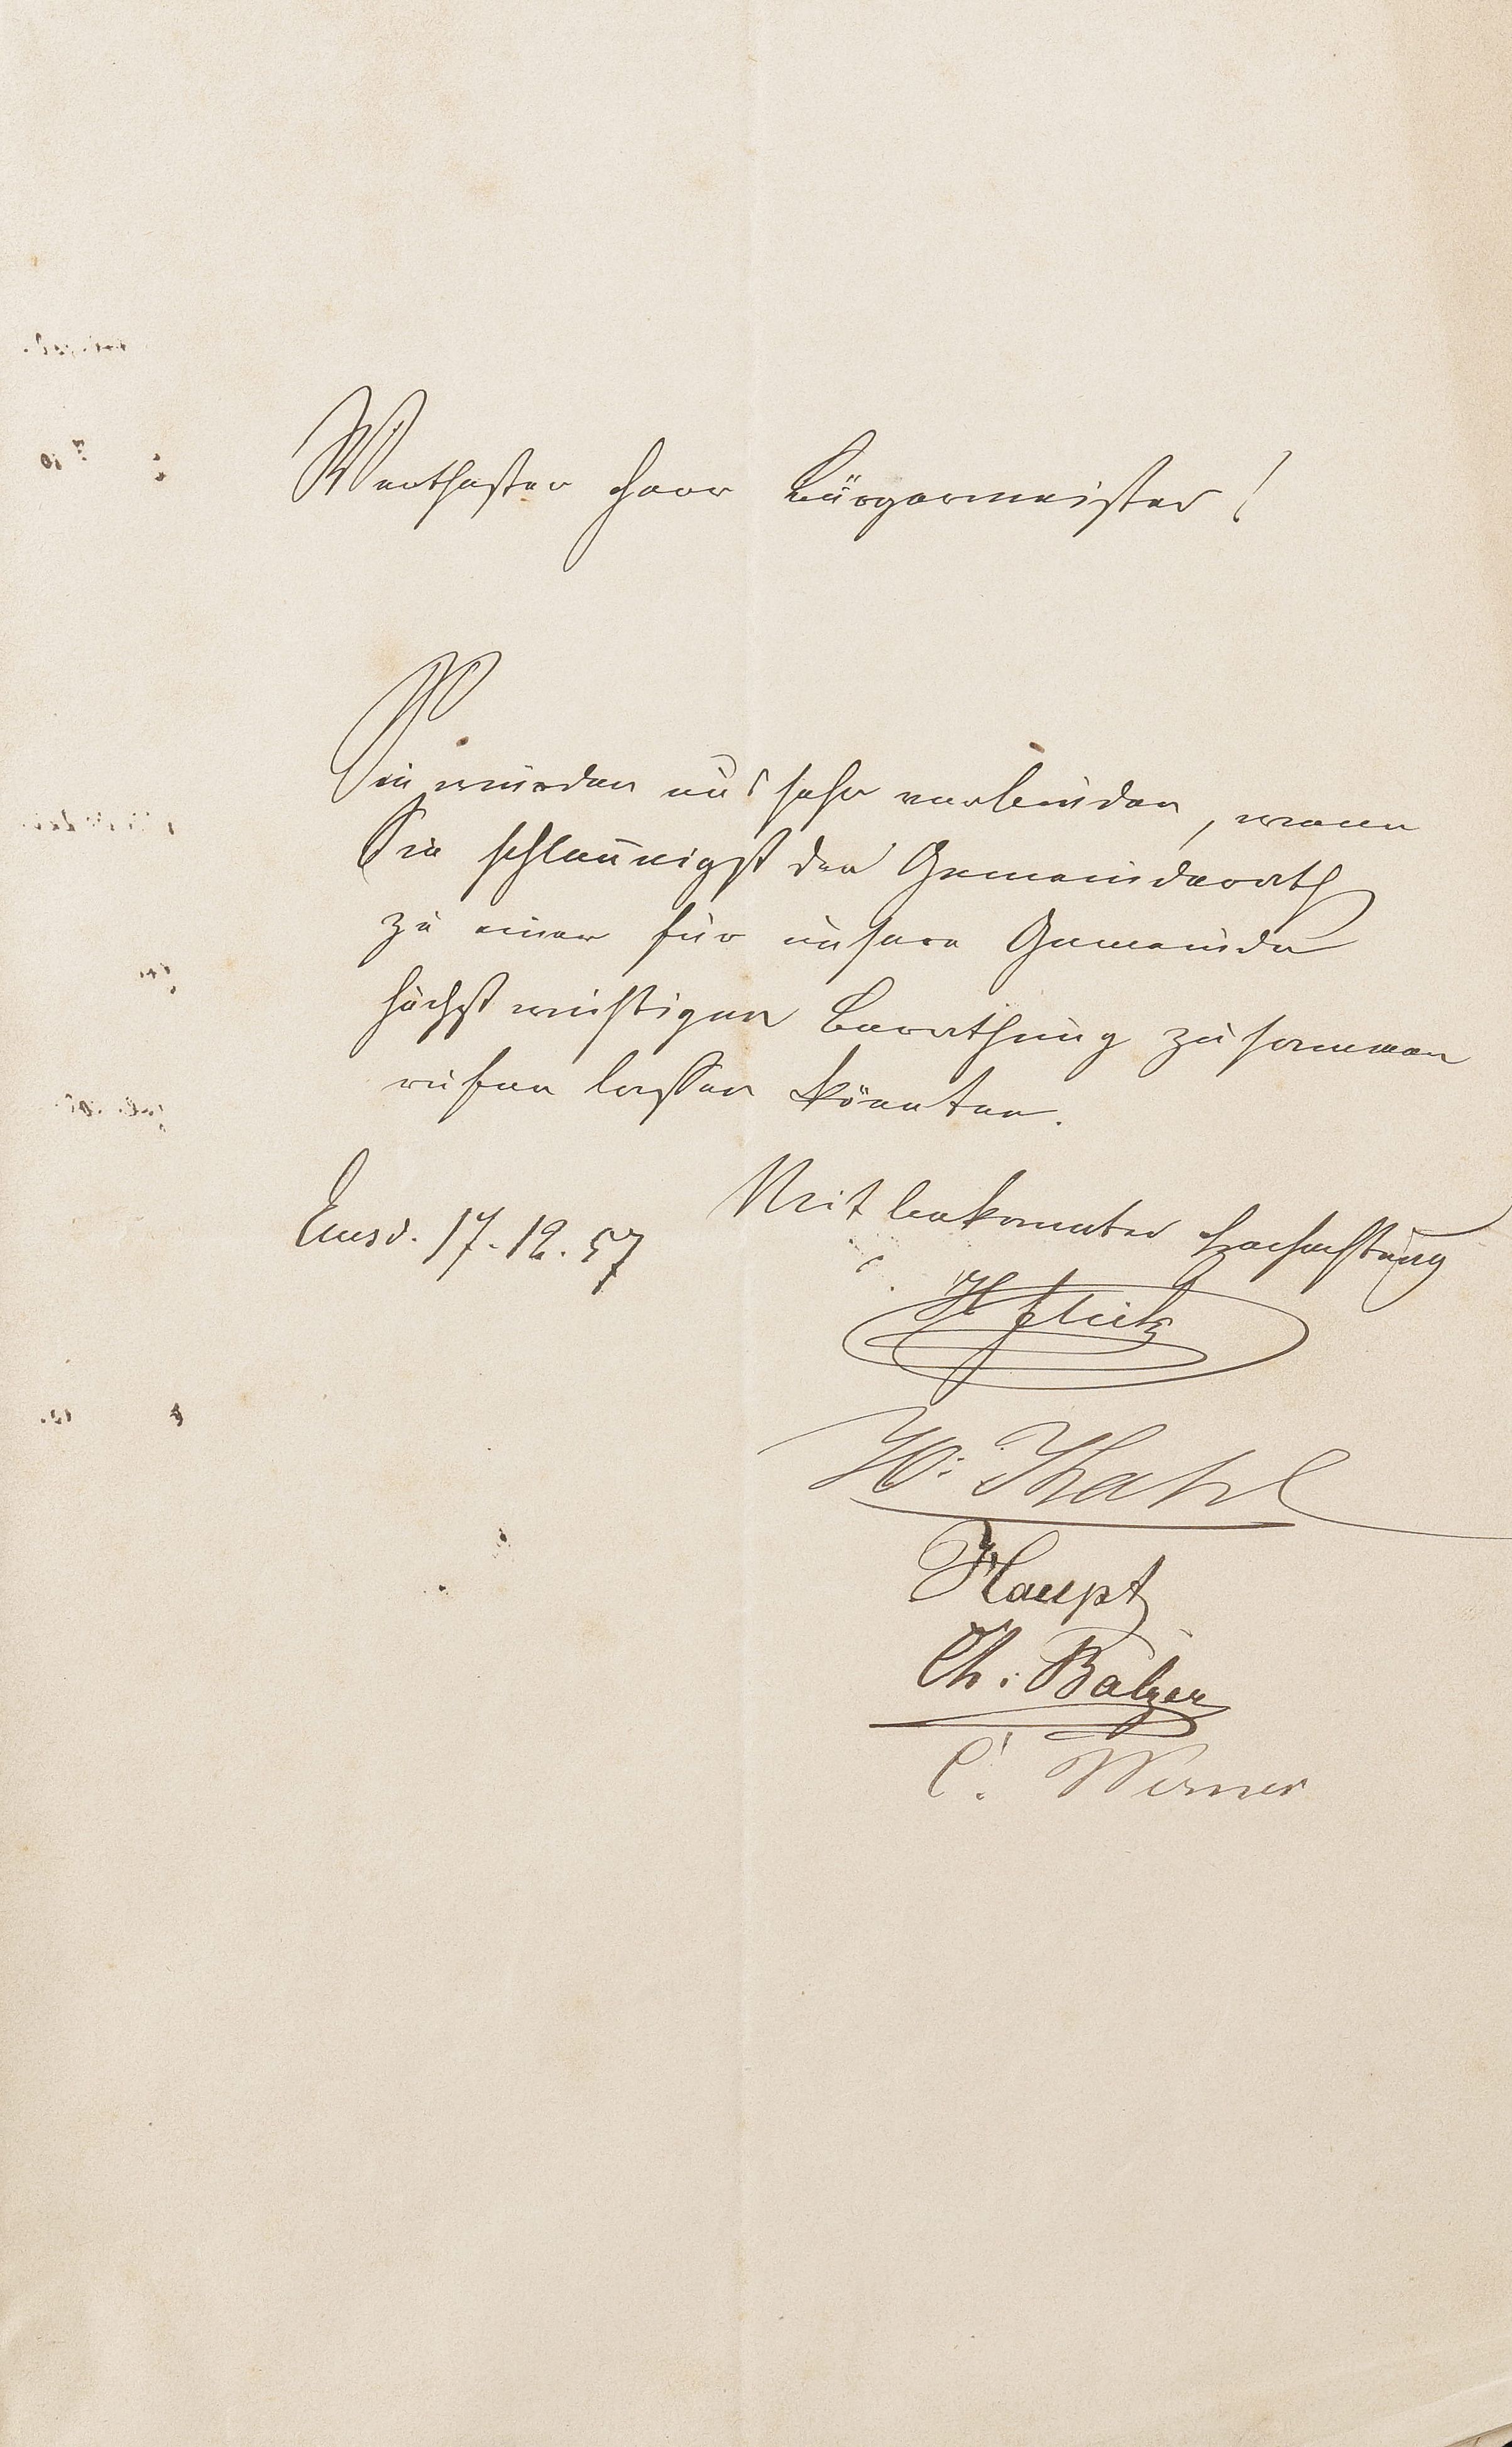 Werthester Herr Bürgermeister!
Sie würden uns sehr verbinden, wenn
Sie schleunigst den Gemeinderath
zu einer für unsere Gemeinde
höchst wichtigen Berathung zusammen
rufen lassen könnten.
Mit bekannter Hochachtung
Emsd. 17.12.57
H Flick
W: Thahl
Haupt
Ch: Balzer
C. Werner